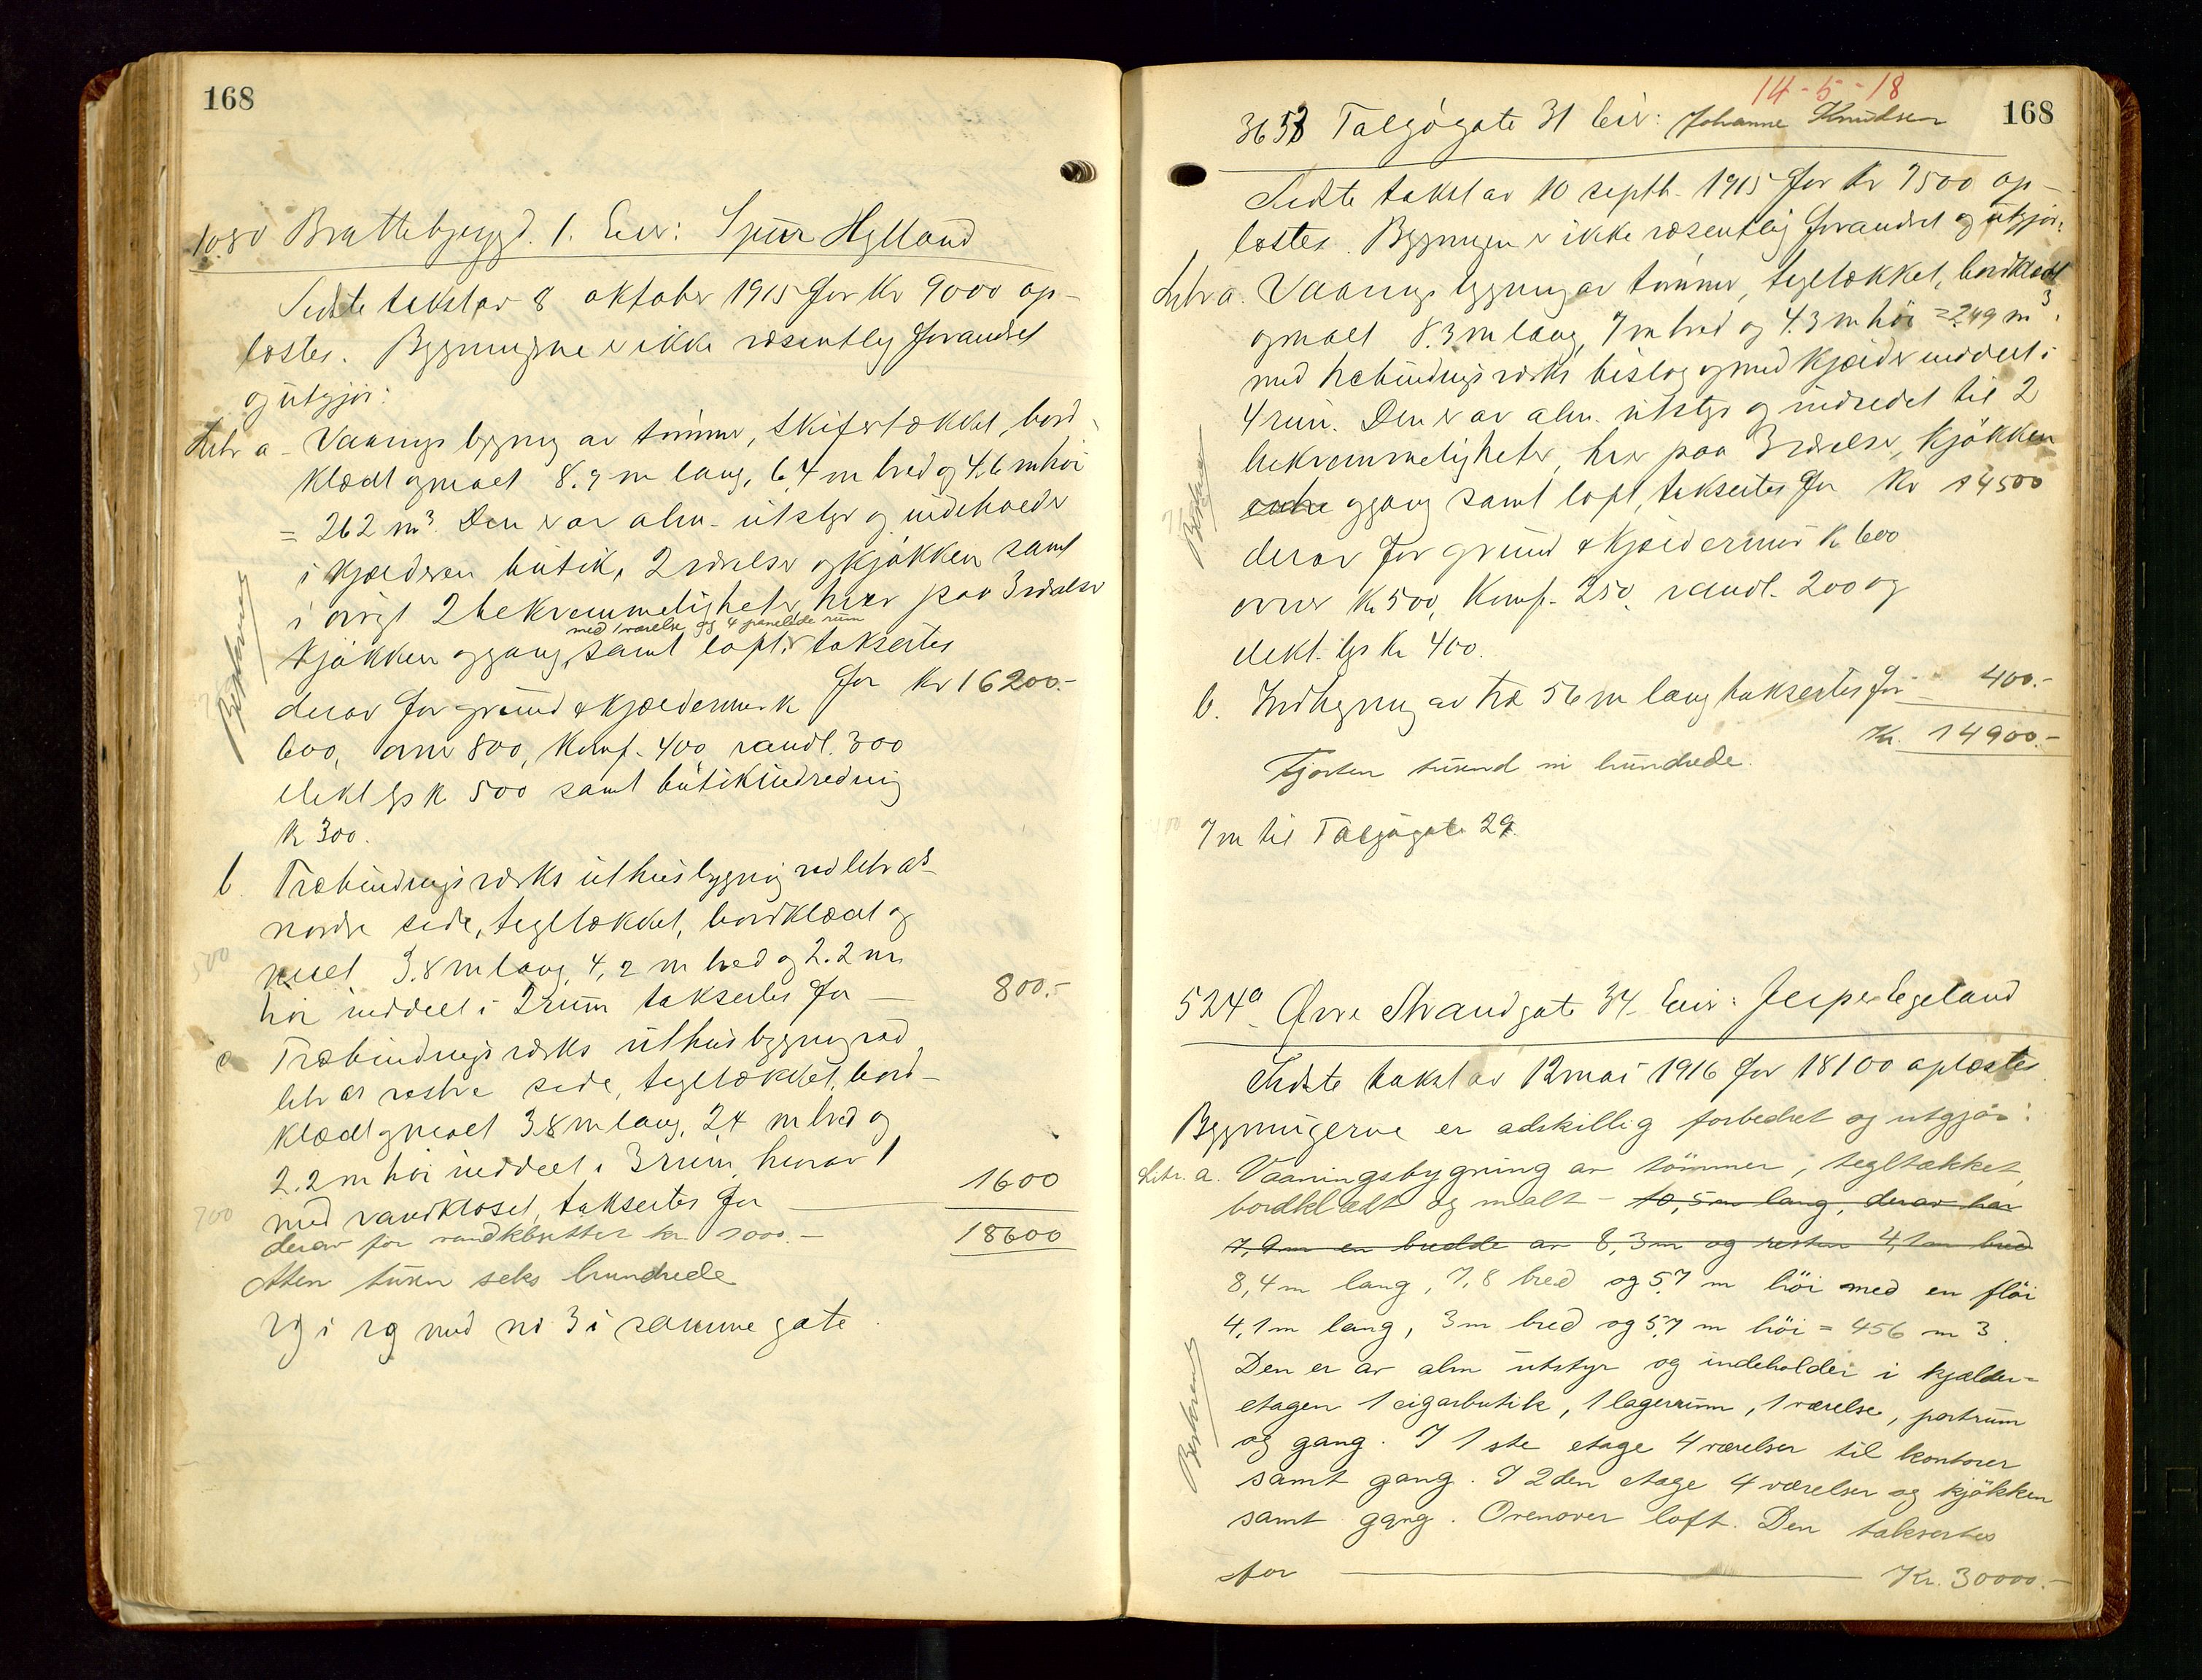 168
1080 Brattebyggd. 1. Eier: Spur Hylland
Sidste takst av 8 oktober 1915 for Kr 9000 op-
læstes. Bygningerne er ikke væsentlig forandret
og utgjør:
Litr a - Vaanings bygning av tømmer, skifertækket, bord-
klædt og malt 8.9 m lang, 6,4 m bred og 4,6 m høi
= 262 m³. Den er av alm. utstyr og indeholder
i kjælderen butik, 2 værelser og kjøkken samt
i øvrigt 2 bekvemmeligheter, hver paa 3 værelser
med 1 værelse og 4 panelede rum
kjøkken og gang, samt loft takseres
for Kr 16200.-
derav for grund & kjældermur k
600, ovne 800, Komf. 400 vandl. 300
elekt lys k 500 samt butikindredning
k 300.
b. Træbindingsverks uthusbygning ved litr a's
nordre side, tegltækket, bordklædt og
malt 3.8 m lang, 4,2 m bred og 2.2 m
høi inddelt i 2 rum taksertes for - 800.-
c Træbindingsverks uthusbygning ved
litr a's vestre side, tegltækket, bord-
klædt og malt 3.8 m lang, 2,4 m bred og
2.2 m høi inddelt i 3 rum, hvorav 1
med vandkloset, taksertes for 1600
derav for vandklosetter kr. 1000.- 18600
Atten tusen seks hundrede
ryg i ryg med no 3 i samme gate.
Besteheran
500
700
14-5-18
168
3653 Talgøgate 31 Eier: Johanne Knudsen
Sidste takst av 10 septb. 1915 for kr 7500 op-
læstes. Bygningen er ikke væsentlig forandret og utgjør:
Litr a. Vaanings bygning av tømmer, tegltækket, bordklædt
og malt 8.3 m lang, 7 m bred og 4.3 m høi = 249 m³.
med træbindingsverks bislag og med kjælder inddelt i
4 rum. Den er av alm. utstyr og indredet til 2
bekvemmeligheter, hver paa 3 værelser, kjøkken
og gang samt loft, taksertes for Kr 14500
derav for grund & kjældermur k 600
ovner k 500, Komf. 250, vandl. 200 og
elekt. lys k 400.
b. Indhegning av træ 56 m lang taksertes for - 400.-
Kr. 14900.-
Fjorten tusend ni hundrede.
7 m til Talgøgate 29.
524a Øvre Strandgate 34. Eier: Jesper Egeland
Sidste takst av 12 mai 1916 for 18100 oplæstes
Bygningerne er adskillig forbedret og utgjør:
Litr. a. Vaaningsbygning av tömmer, tegltækket,
bordklædt og malt - 10,5 m lang, derav har
7,9 m en bredde av 8,3 m og resten 4,1 m bred
8,4 m lang, 7,8 bred og 5,7 m höi med en flöi
4,1 m lang, 3 m bred og 5,7 m höi = 456 m 3.
Den er av alm utstyr og indeholder i kjælder-
etagen 1 cigarbutik, 1 lagerrum, 1 værelse, portrum
og gang. I 1ste etage 4 værelser til kontorer
samt gang. I 2den etage 4 værelser og kjökken
samt gang. Ovenover loft. Den taksertes
for Kr. 30000.-